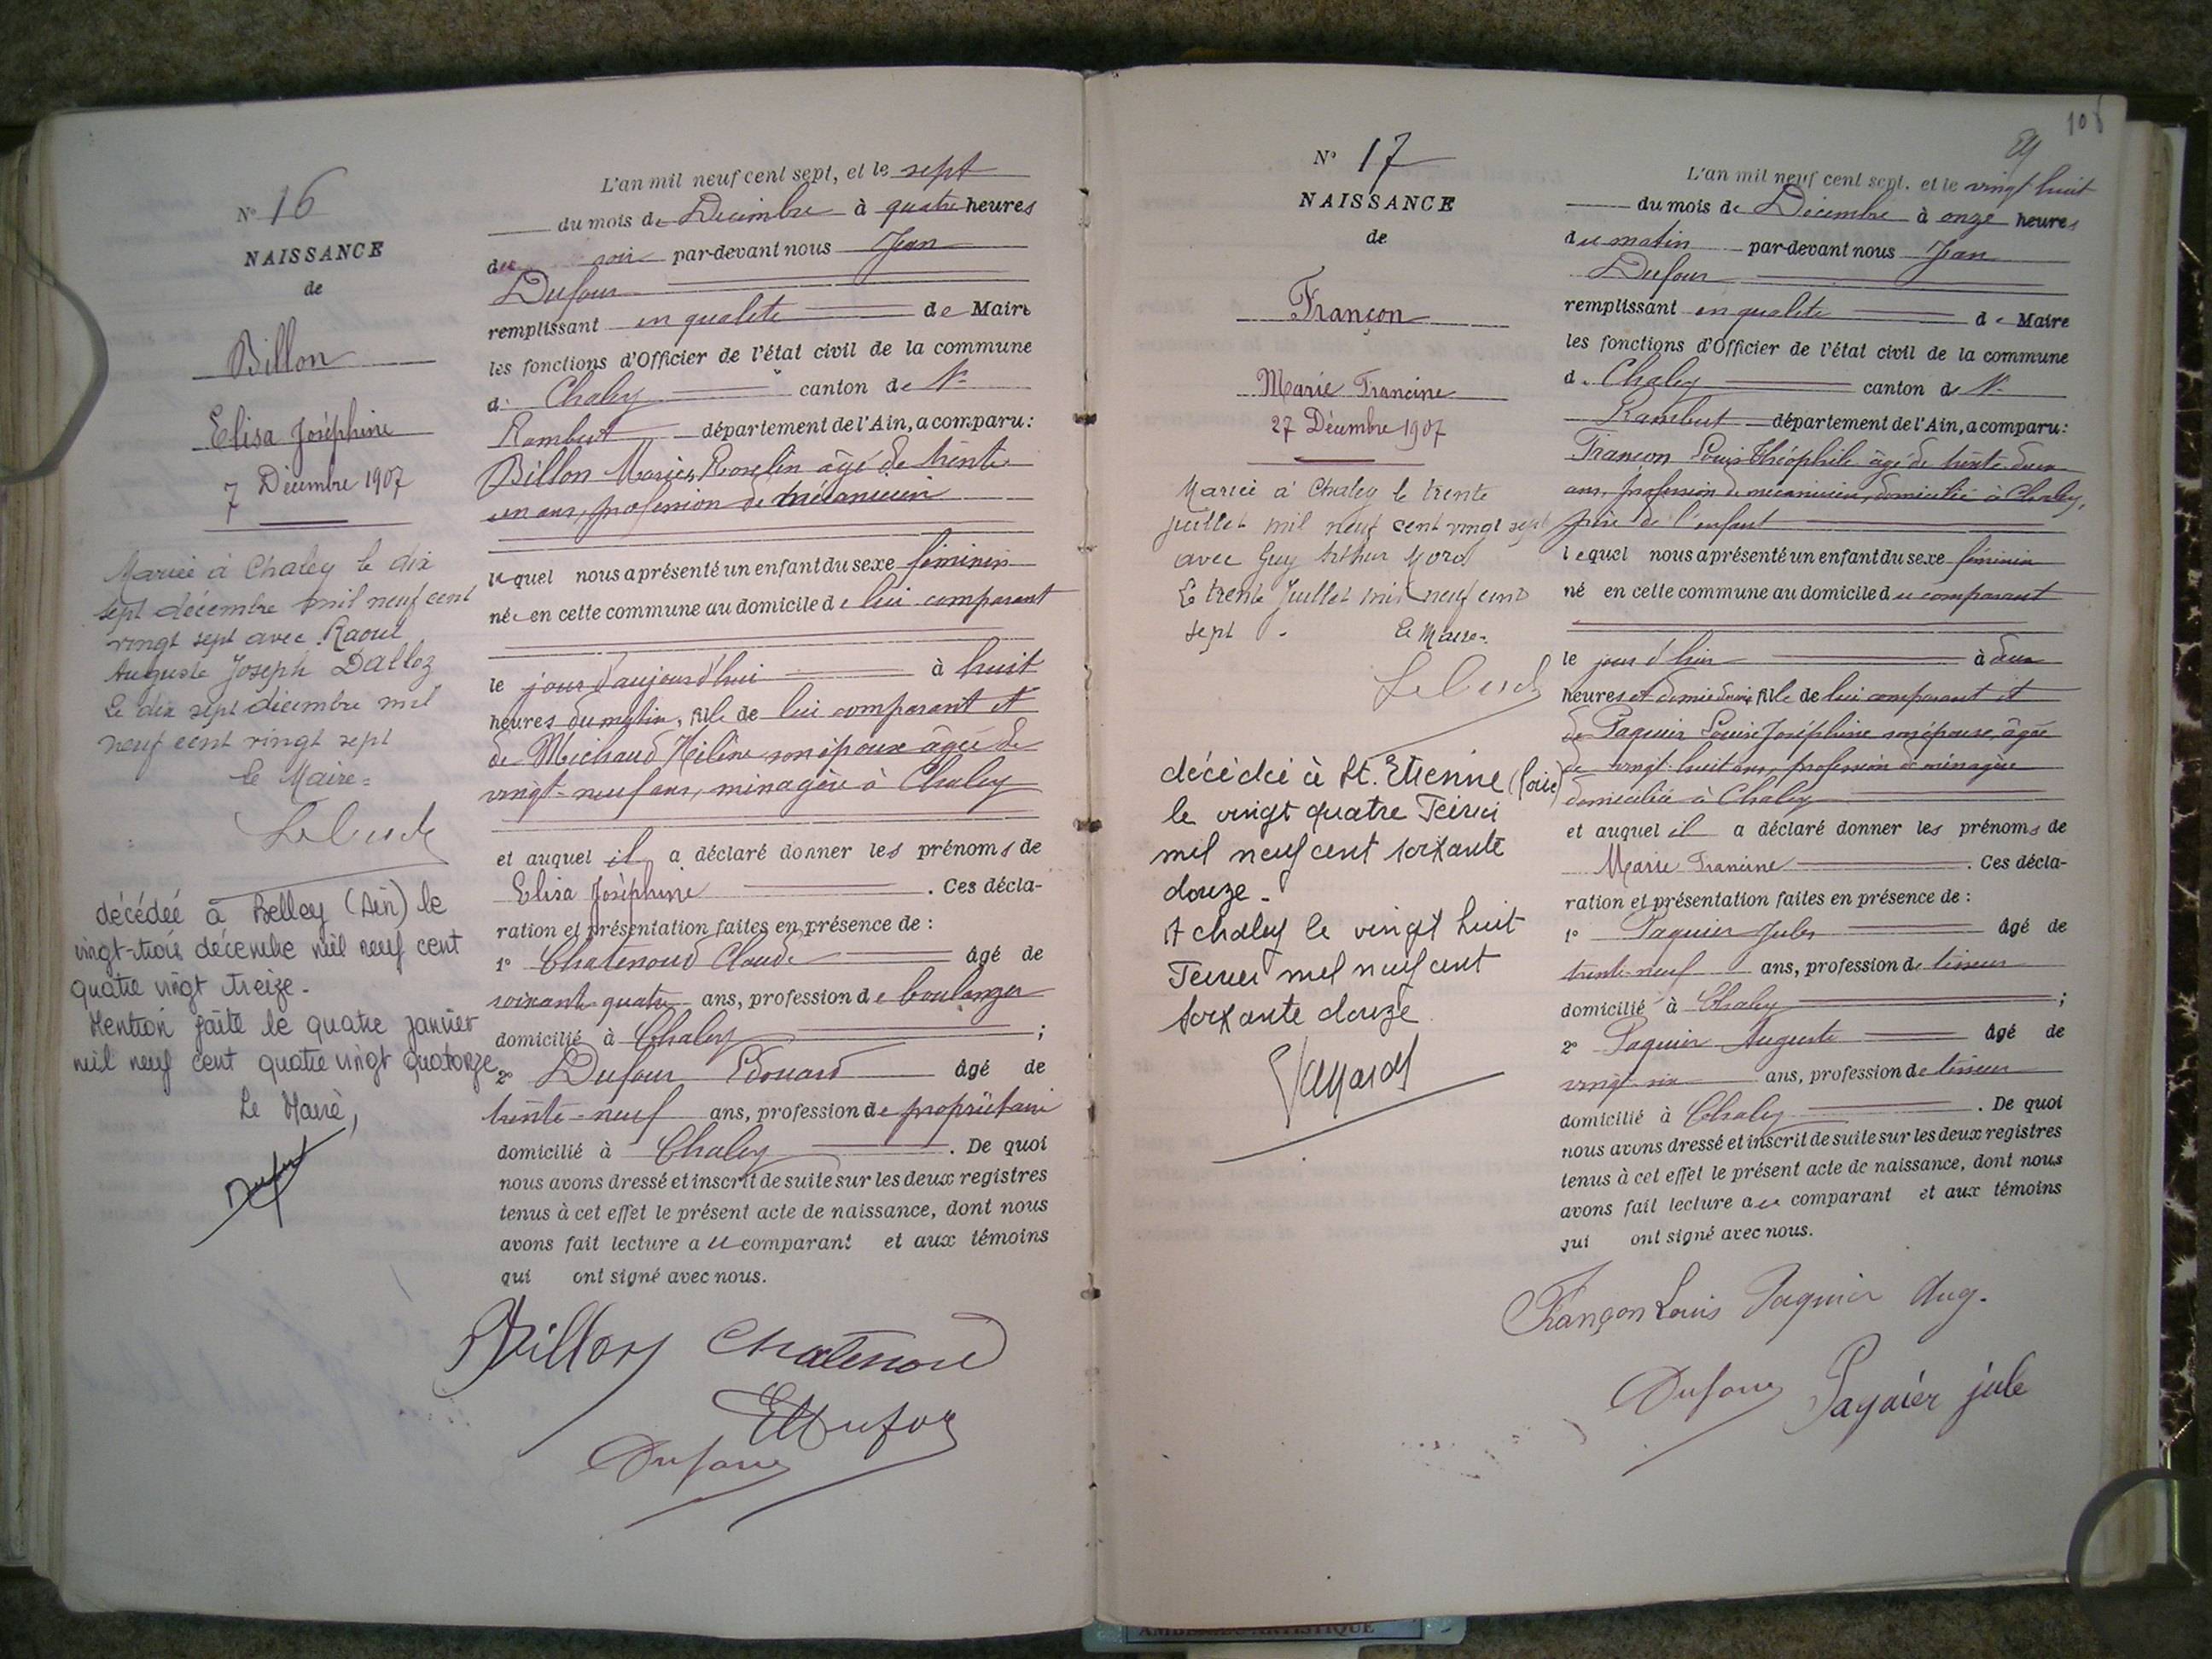 N° 16
NAISSANCE
de
Billon
Elisa Joséphine
7 Décembre 1907
Mariée à Chaley le dix
sept décembre mil neuf cent
vingt sept avec Raoul
Auguste Joseph Dalloz
Le dix sept décembre mil
neuf cent vingt sept
le Maire=
décédée à Belley (Ain) le
vingt-trois décembre mil neuf cent
quatre vingt treize.
Mention faite le quatre janvier
mil neuf cent quatre vingt quatorze
Le Maire,
L'an mil neuf cent sept, et le sept
du mois de Décembre à quatre heures
du soir par-devant nous Jean
Dufour
remplissant en qualité de Maire
les fonctions d'Officier de l'état civil de la commune
de Chaley canton de St
Rambert département de l'Ain, a comparu:
Billon Marius âgé de trente
un ans, profession de mécanicien
lequel nous a présenté un enfant du sexe féminin
née en cette commune au domicile de lui comparant
le jour d'aujourd'hui à huit
heures du matin, fille de lui comparant et
de Michaud Hélène son épouse âgée de
vingt-neuf ans, ménagère à Chaley
et auquel il a déclaré donner les prénoms de
Elisa Joséphine . Ces décla-
ration et présentation faites en présence de :
1° Chatenoud Claude âgé de
soixant quatre ans, profession de boulanger
domicilié à Chaley ;
2° Dufour Edouard âgé de
trente-neuf ans, profession de propriétaire
domicilié à Chaley . De quoi
nous avons dressé et inscrit de suite sur les deux registres
tenus à cet effet le présent acte de naissance, dont nous
avons fait lecture au comparant et aux témoins
qui ont signé avec nous.
Billon Chatenoud
E Dufour
Dufour
108
N° 17
NAISSANCE
de
Françon
Marie Francine
27 Décembre 1907
Mariée à Chaley le trente
juillet mil neuf cent vingt sept
avec Guy Arthur
Le trente Juillet mil neuf cent
sept . Le Maire=
décédée à St. Etienne (Loire)
le vingt quatre Février
mil neuf cent soixante
douze.
A chaley le vingt huit
Février mil neuf cent
soixante douze
L'an mil neuf cent sept, et le vingt huit
du mois de Décembre à onze heures
du matin par-devant nous Jean
Dufour
remplissant en qualité de Maire
les fonctions d'Officier de l'état civil de la commune
de Chaley canton de St
Rambert département de l'Ain, a comparu:
Françon Louis Théophile âgé de trente deux
ans, profession de mécanicien, domicilié à Chaley,
père de l'enfant
lequel nous a présenté un enfant du sexe féminin
né en cette commune au domicile du comparant
le jour d'hier à deux
heures et demie fille de lui comparant et
de Paquier Louise Joséphine son épouse, âgée
de vingt huit ans, profession de ménagère
domiciliée à Chaley
et auquel il a déclaré donner les prénoms de
Marie Francine . Ces décla-
ration et présentation faites en présence de :
1° Paquier Jules âgé de
trente-neuf ans, profession de tisseur
domicilié à Chaley ;
2° Paquier Auguste âgé de
vingt six ans, profession de tisseur
domicilié à Chaley . De quoi
nous avons dressé et inscrit de suite sur les deux registres
tenus à cet effet le présent acte de naissance, dont nous
avons fait lecture au comparant et aux témoins
qui ont signé avec nous.
Françon Louis Paquier Aug.
Dufour Paquier jule